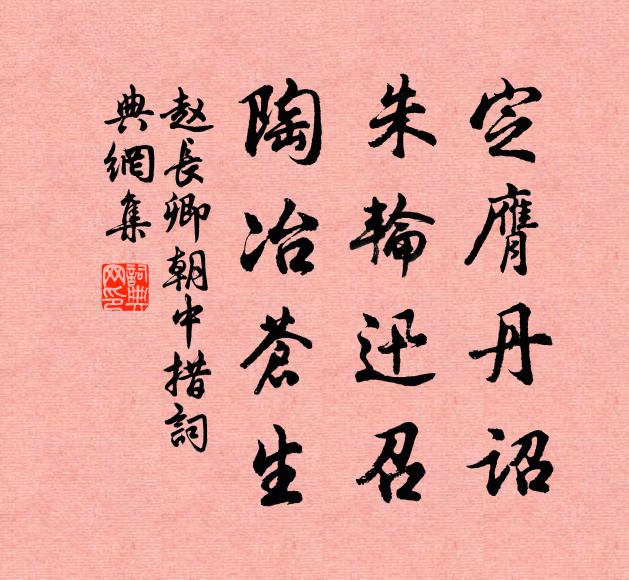 定膺丹詔
朱輪迅召
陶冶蒼生
赵長卿朝中措詞
典網集
詞典网印